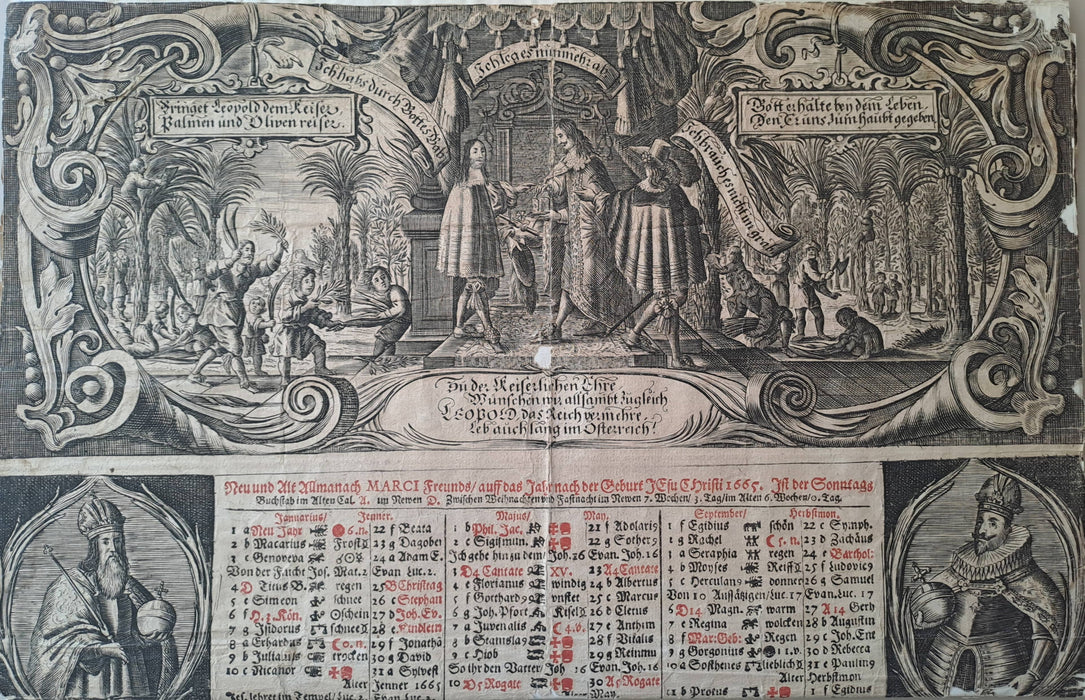 Ich habs durch Gottes Gab
Ich leg es nunmehr ab
Ich brauch es nicht in grab
Bringet Leopold dem Keiser,
Palmen und Oliven reiser.
Gott erhalte bey dem Leben
Den Er uns zum haubt gegeben
Zu der Keiserlichen Ehre
Wünschen wir allsambt zugleich
LEOPOLD das Reich vermehre,
Leb auch lang im Osterreich!
Neu und Alt Allmanach MARCI Freunds/ auff das Jahr nach der Geburt JEsu CHristi 1665. Ist der Sonntags
Buchstab im Alten Cal. A. im Newen D. Zwischen Weihnachten und Fastnacht im Newen 7. Wochen/ 3. Tag/ im Alten 6. Wochen/ 0. Tag.
Januarius/ Jenner.
1 a Neu Jahr 6.n. 22 f Beata
2 b Macarius Frost 23 g Dagobei
3 c Genoveva 24 a Adam E.
Von der Jos. Mat. 2 Evan Luc. 2.
4 D Titus B. regen 25 B Christtag
5 e Simeon schnee 26 c Stephan
6 f H. 3. Kön. schein 27 d Joh. Ev.
7 g Isidorus schnee 28 e Kindlein
8 a Erhardus 0. n. 29 f Jonathā
9 b Julianus trocken 30 g David
10 c Nicanor 31 a Sylvest
Alter Jenner 1665
Jes. lehret im Tempel/ Luc. 2. Evan Luc. 2.
Majus/ May.
1 b Phil. Jac. 21 f Adolarig
2 c Sigismun. 22 g Sother9
Ich gehe hin zu dem/ Joh. 16 Evan. Joh. 16
3 D4 Cantate XV. 23 A4 Cantate
4 e Florianus windig 24 b Albertus
5 f Gotthard9 unstet 25 c Marcus
6 g Joh. Pfort Kisel 26 d Cletus
7 a Juvenalis 4.v. 27 e Anthim
8 b Stanisla9 28 f Vitalis
9 c Hiob 29 g Reinmu
So ihr den Vatter/ Joh 16 Evan. Joh. 16
10 D5 Rogate 30 A5 Rogate
May.
September/ Herbstmon.
1 f Egidius schön 22 c Symph.
g Rachel 5. n. 23 d Zachäus
a Seraphia regen 24 e Barthol:
b Moyses Reiff 25 f Ludovicg
5 c Herculan9 donner 26 g Samuel
Von 10 Aussätzigen/ Luc. 17 Evan. Luc. 17
6 D14 Magn. warm 27 A 14 Gerh
7 e Regina wolcken 28 b Augustin
8 f Mar: Geb: Regen 29 c Joh. Ent
9 g Gorgonius 11.v. 30 d Rebecca
10 a Sosthenes lieblich 31 e Pauling
Alter Herbstmon
11 b Protus 1 f Egidius